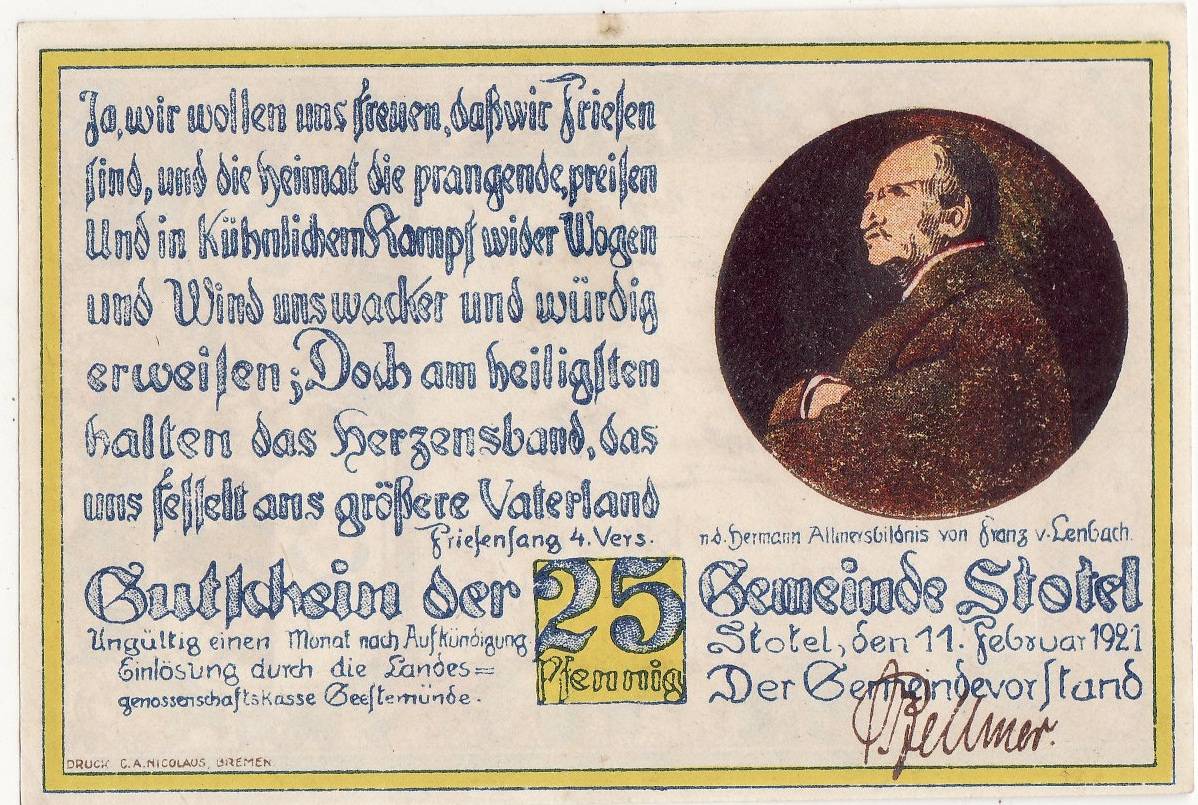 Ja, wir wollen uns freuen, daß wir Friesen
sind, und die Heimat die prangende, preisen
Und in Kühnlichem Kampf wider Wogen
und Wind uns wacker und würdig
erweisen; Doch am heiligsten
halten das Herzensband, das
uns fesselt ans größere Vaterland
Friesensang 4. Vers.
n.d. Hermann Allmersbildnis von Franz v. Lenbach.
Gutschein der 25 Gemeinde Stotel
Pfennig
Ungültig einen Monat nach Aufkündigung.
Einlösung durch die Landes=
genossenschaftskasse Geestemünde.
Stotel, den 11. Februar 1921
Der Gemeindevorstand
DRUCK C. A. NICOLAUS, BREMEN